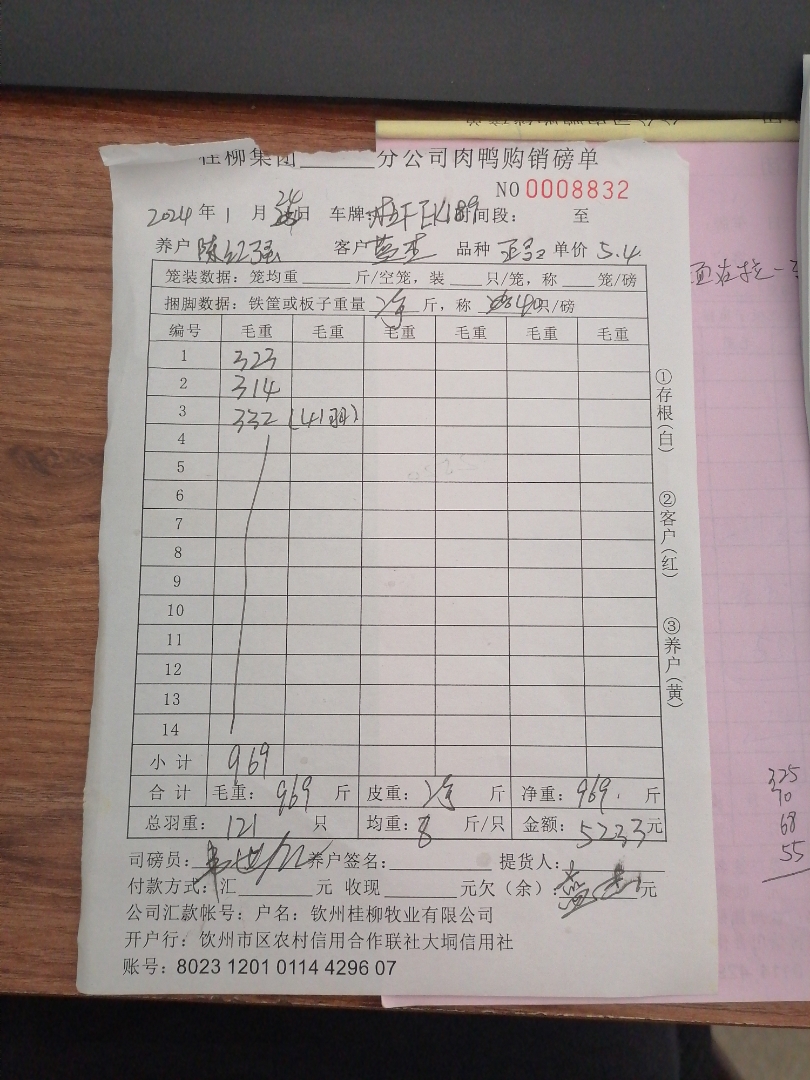 桂柳集团______分公司肉鸭购销磅单
NO 0008832
2024 年 1 月 24 日 车牌: 时间段: 至
养户 陈红强 客户 蓝杰 品种 单价 5.4
笼装数据: 笼均重 ______ 斤/空笼, 装 ___ 只/笼, 称 ___ 笼/磅
捆脚数据: 铁筐或板子重量 净 斤, 称 40 只/磅
编号 毛重 毛重 毛重 毛重 毛重 毛重
1 323
2 314
3 332 (41羽)
4
5
6
7
8
9
10
11
12
13
14
小计 969
合计 毛重: 969 斤 皮重: 净 斤 净重: 969. 斤
总羽重: 121 只 均重: 8 斤/只 金额: 5233元
司磅员: 养户签名: ________ 提货人:
付款方式: 汇 ________ 元 收现 ________ 元欠(余): 元
公司汇款帐号: 户名: 钦州桂柳牧业有限公司
开户行: 钦州市区农村信用合作联社大垌信用社
账号: 8023 1201 0114 4296 07
①存根(白)
②客户(红)
③养户(黄)
325
70
68
55